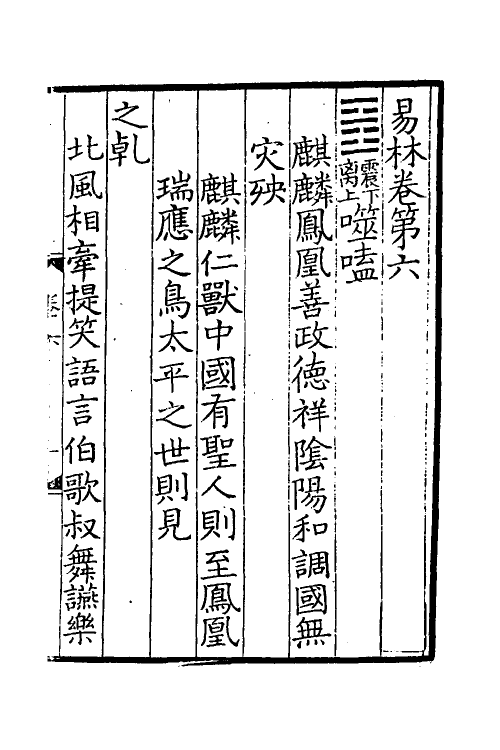 易林卷第六
䷔震下离上噬嗑
麒麟鳳凰善政德祥陰陽和調國無
灾殃
麒麟仁獸中國有聖人則至鳳凰
瑞應之鳥太平之世則見
之乹
北風相牽提笑語言伯歌叔舞讌樂